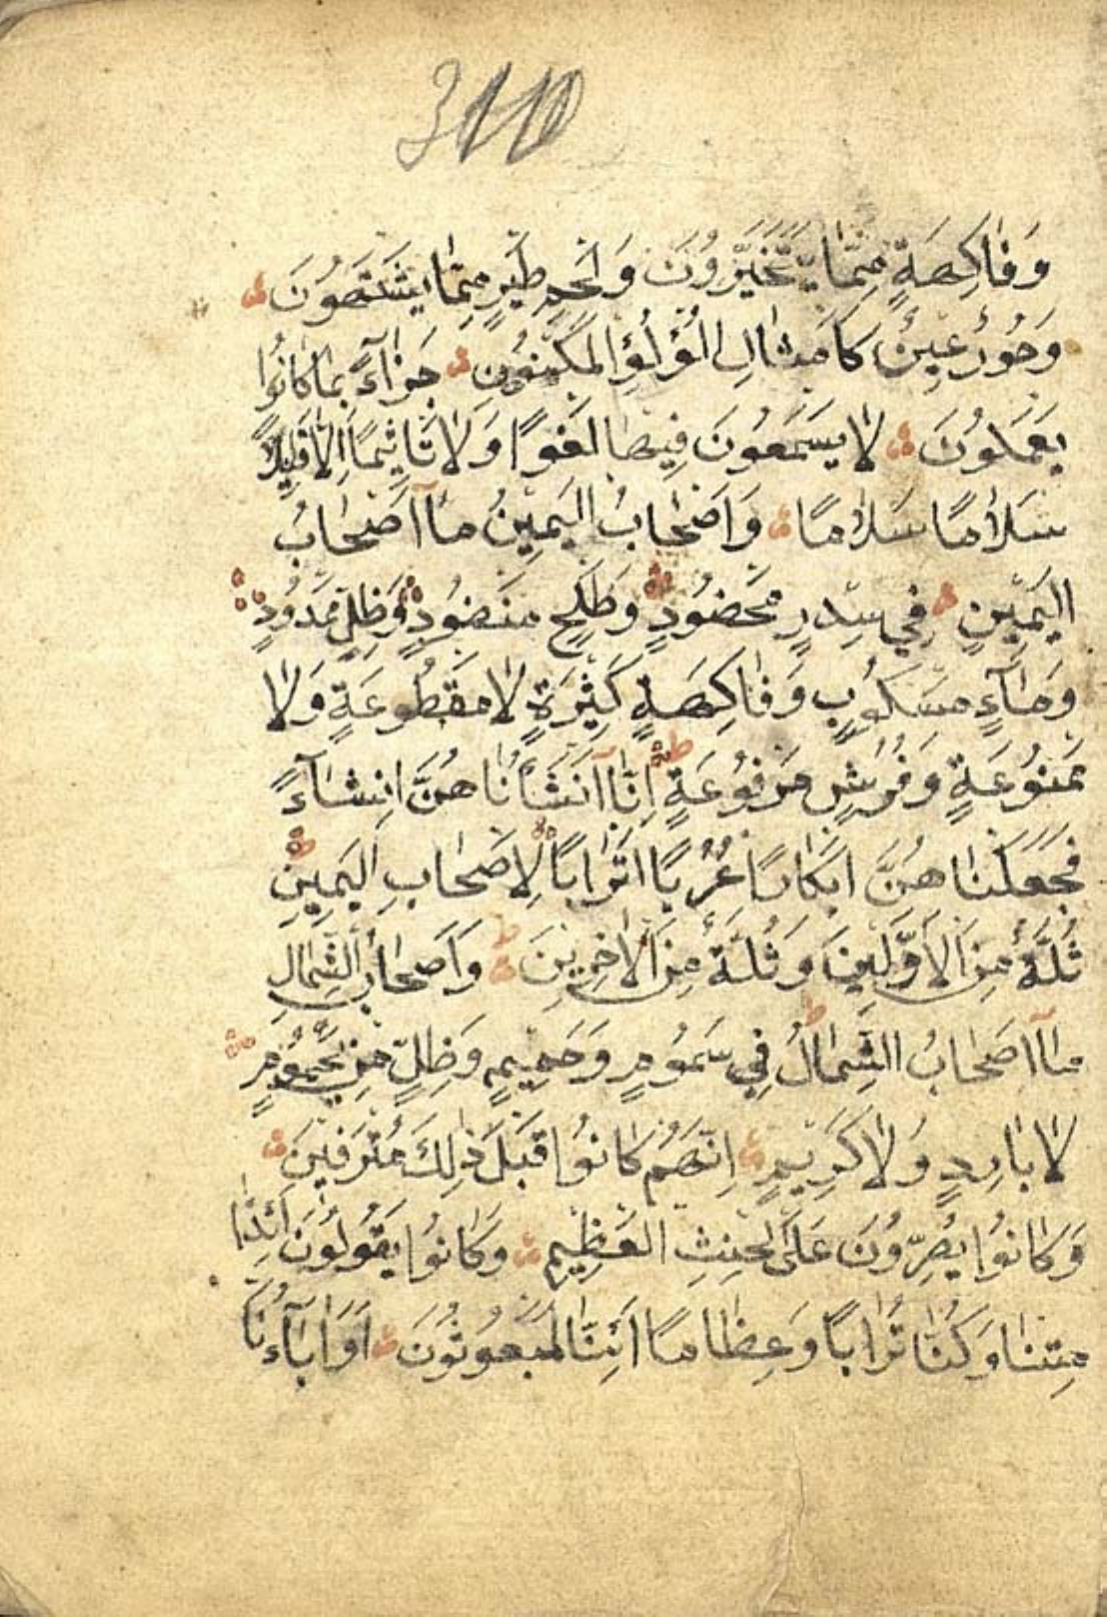 310
وَفَاكِهَةٍ مِمَّا يَتَخَيَّرُونَ وَلَحْمِ طَيْرٍ مِمَّا يَشْتَهُونَ
وَحُورٌ عِينٌ كَامْثَالِ الُّؤْلُؤِ الْمَكْنُونِ جَزَاءً بِمَا كَانُوا
يَعْمَلُونَ لَا يَسْمَعُونَ فِيهَا لَغْوًا وَلَا تَاثِيمًا اِلَّا قِيلًا
سَلَامًا سَلَامًا وَاَصْحَابُ الْيَمِينِ مَا اَصْحَابُ
الْيَمِينِ فِي سِدْرٍ مَخْضُودٍ وَطَلْحٍ مَنْضُودٍ وَظِلٍّ مَمْدُودٍ
وَمَاءٍ مَسْكُوبٍ وَفَاكِهَةٍ كَثِيرَةٍ لَا مَقْطُوعَةٍ وَلَا
مَمْنُوعَةٍ وَفُرُشٍ مَرْفُوعَةٍ اِنَّا اَنْشَأْنَاهُنَّ اِنْشَاءً
فَجَعَلْنَاهُنَّ اَبْكَارًا عُرُبًا اَتْرَابًا لِاَصْحَابِ الْيَمِينِ
ثُلَّةٌ مِنَ الْاَوَّلِينَ وَثُلَّةٌ مِنَ الْاخِرِينَ وَاَصْحَابُ الشِّمَالِ
مَا اَصْحَابُ الشِّمَالِ فِي سَمُومٍ وَحَمِيمٍ وَظِلٍّ مِنْ يَحْمُومٍ
لَا بَارِدٍ وَلَا كَرِيمٍ اِنَّهُمْ كَانُوا قَبْلَ ذٰلِكَ مُتْرَفِينَ
وَكَانُوا يُصِرُّونَ عَلَى الْحِنْثِ الْعَظِيمِ وَكَانُوا يَقُولُونَ اَئِذَا
مِتْنَا وَكُنَّا تُرَابًا وَعِظَامًا اَئِنَّا لَمَبْعُوثُونَ اَوَ اٰبَاءُنَا